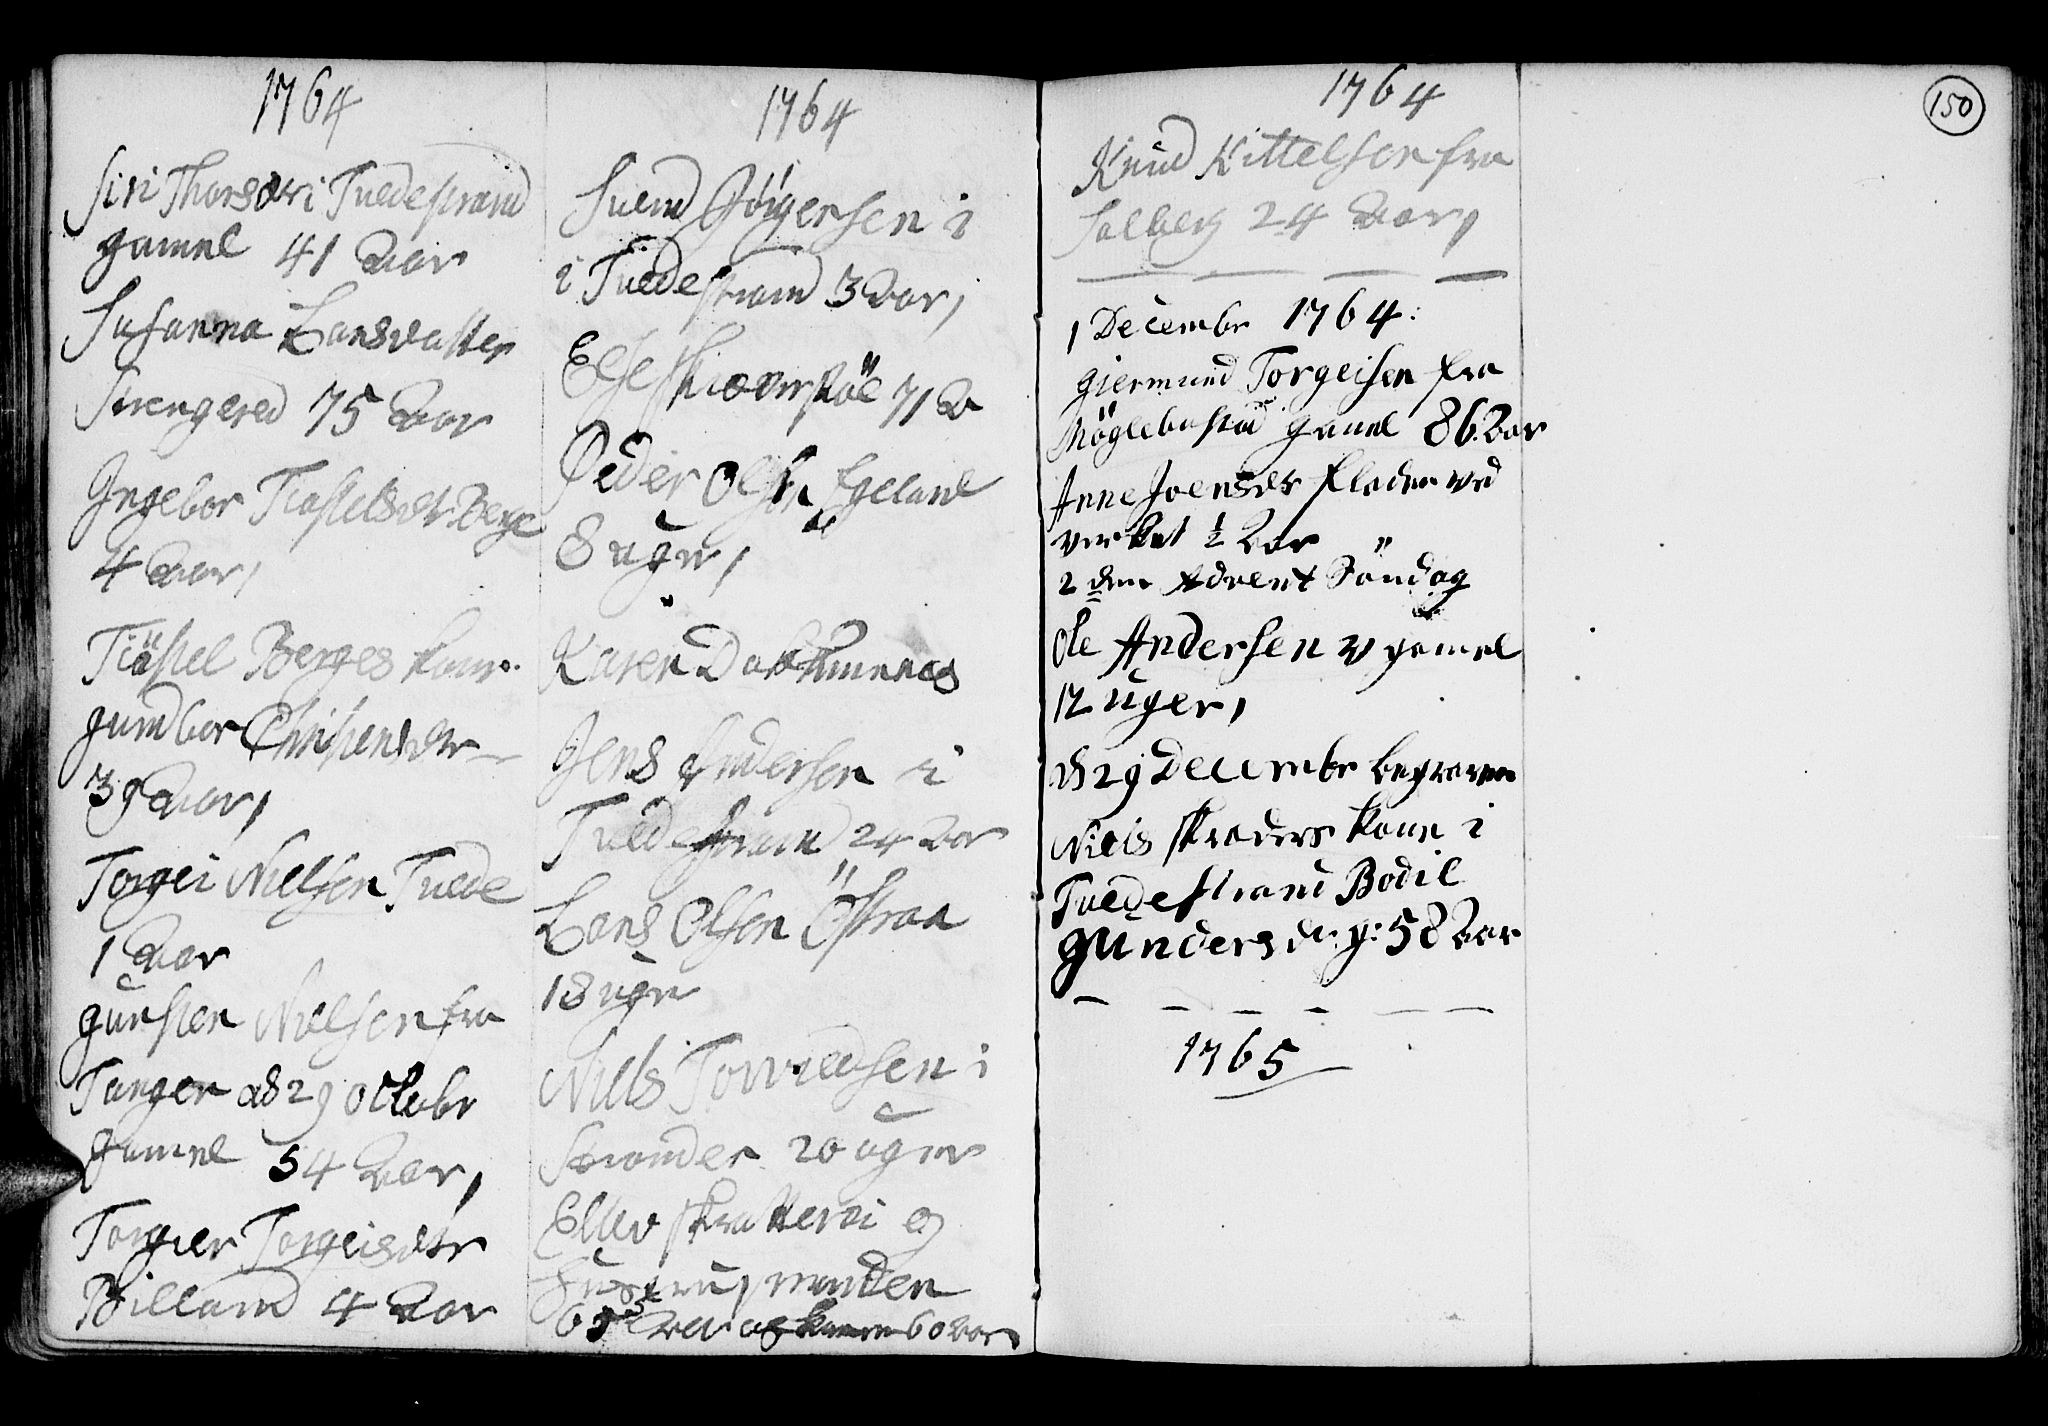 1764
Siri Thorsdtr i Tuedestrand
gamel 41 Aar
Susanna Larsdatter
Strengered 75 Aar
Ingebor Tiostelsdtr Berge
4 Aar,
Tiöstel Berges kone
gundbor Christensdtr
39 Aar,
Torgei Nielsen Tuede
1 Aar
gunsten Nielsen fra
Tanger d 29 octobr
gamel 54 Aar,
Torgier Torgeisdtr
Billand 4 Aar
1764
Suend Jörgensen i
i Tuedestrand 3 Aar,
Else Skiærstöl 71 A
Peder Olsen Egeland
8 uger,
Karen
Jens Andersen i
Tuedestrand 24 Aar
Lars Olsen Östraa
18 uger
Niels Torvildsen i
Strander 20 uger
Ellev skratterei og
hustru, manden
65 Aar og konen 60 Aar
1764
Knud Kittelsen fra
Solberg 24 Aar,
1 Decembr 1764:
giermund Torgeisen fra
Möglebustad gamel 86 Aar
Anne Joensdtr fladen ved
verket ½ Aar
2 den Advent Söndag
Ole Andersen gamel
12 uger,
d 29 Decembr begraven
Niels skræders kone i
Tuedestrand Bodil
gundersdr. g: 58 Aar
1765
150